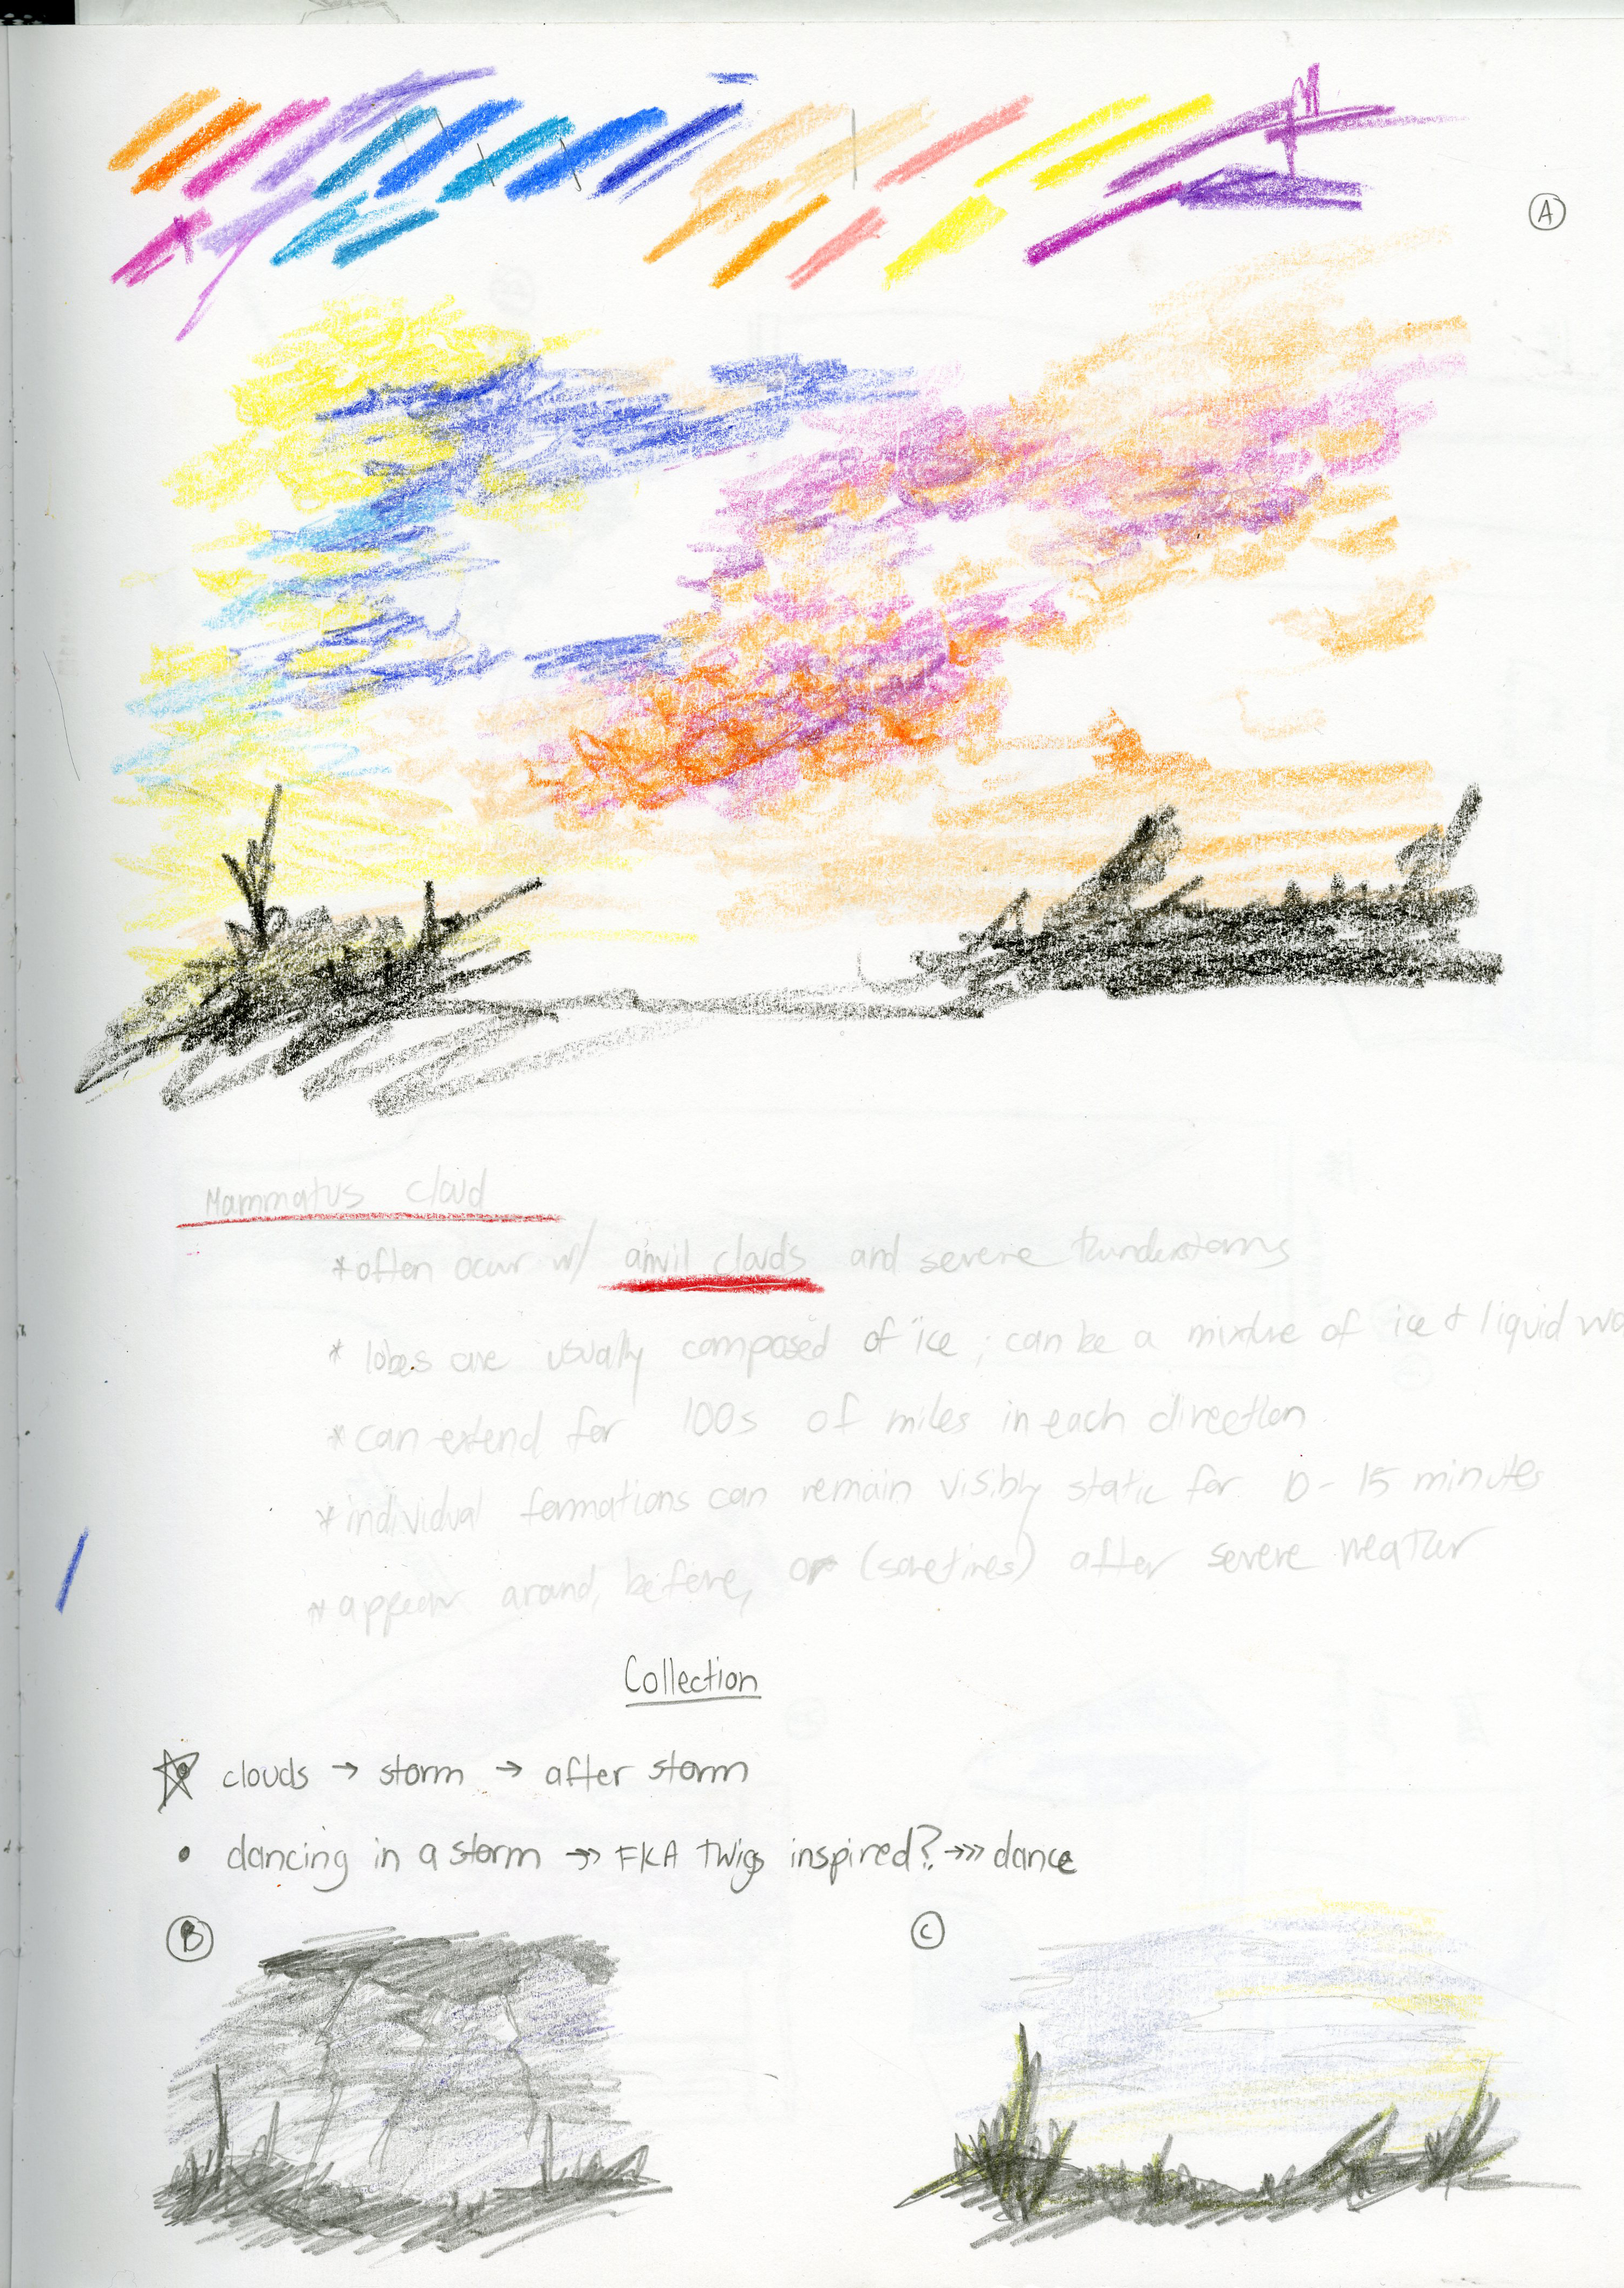 A
Mammatus cloud
*often ocur w/ anvil clouds and severe thunderstorms
* lobes are usually composed of ice; can be a mixture of ice & liquid wa
*can extend for 100s of miles in each direction.
*individual formations can remain visibly static for 10-15 minutes
*appear around, before, or (sometimes) after severe weather
Collection
clouds → storm → after storm
• dancing in a storm →> FKA Twigs inspired? →>> dance
B
C